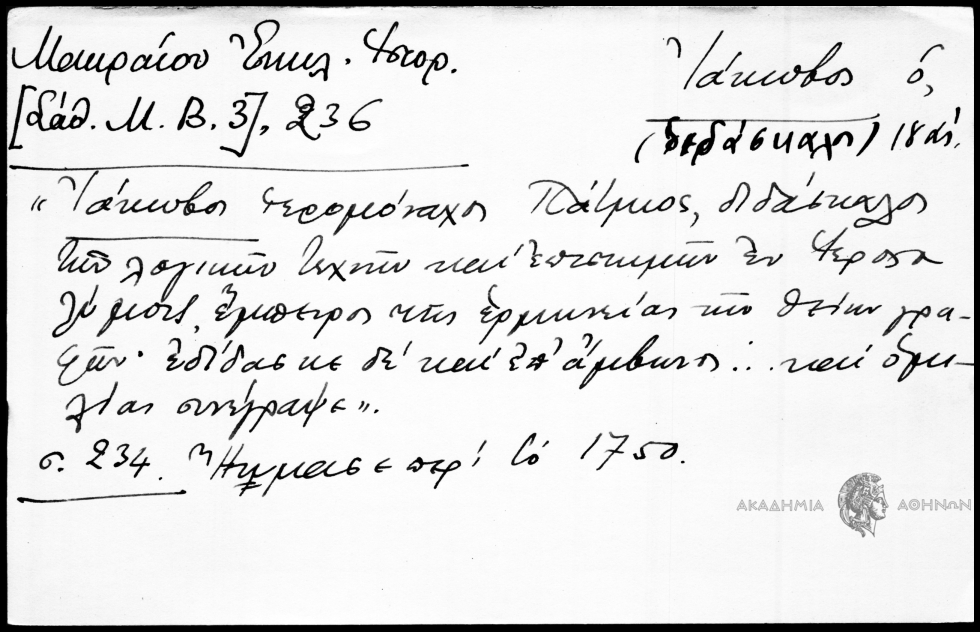 Μακραίου Ἐκκλ. Ἱστορ.
[Σάθ. Μ. Β. 3], 236
Ἰάκωβος ὁ,
(διδάσκαλος) 18 αἰ.
"Ἰάκωβος ἱερομόναχος Πάτμιος, διδάσκαλος
τῶν λογικῶν τεχνῶν καὶ ἐπιστημῶν ἐν Ἱεροσο
λύμοις, ἔμπειρος τῆς ἑρμηνείας τῶν θείων γρα-
φῶν· ἐδίδασκε δὲ καὶ ἐπ' ἄμβωνος... καὶ ὁμι-
λίας συνέγραψε".
σ. 234. Ἤκμασε περὶ τὸ 1750.
ΑΚΑΔΗΜΙΑ ΑΘΗΝΩΝ